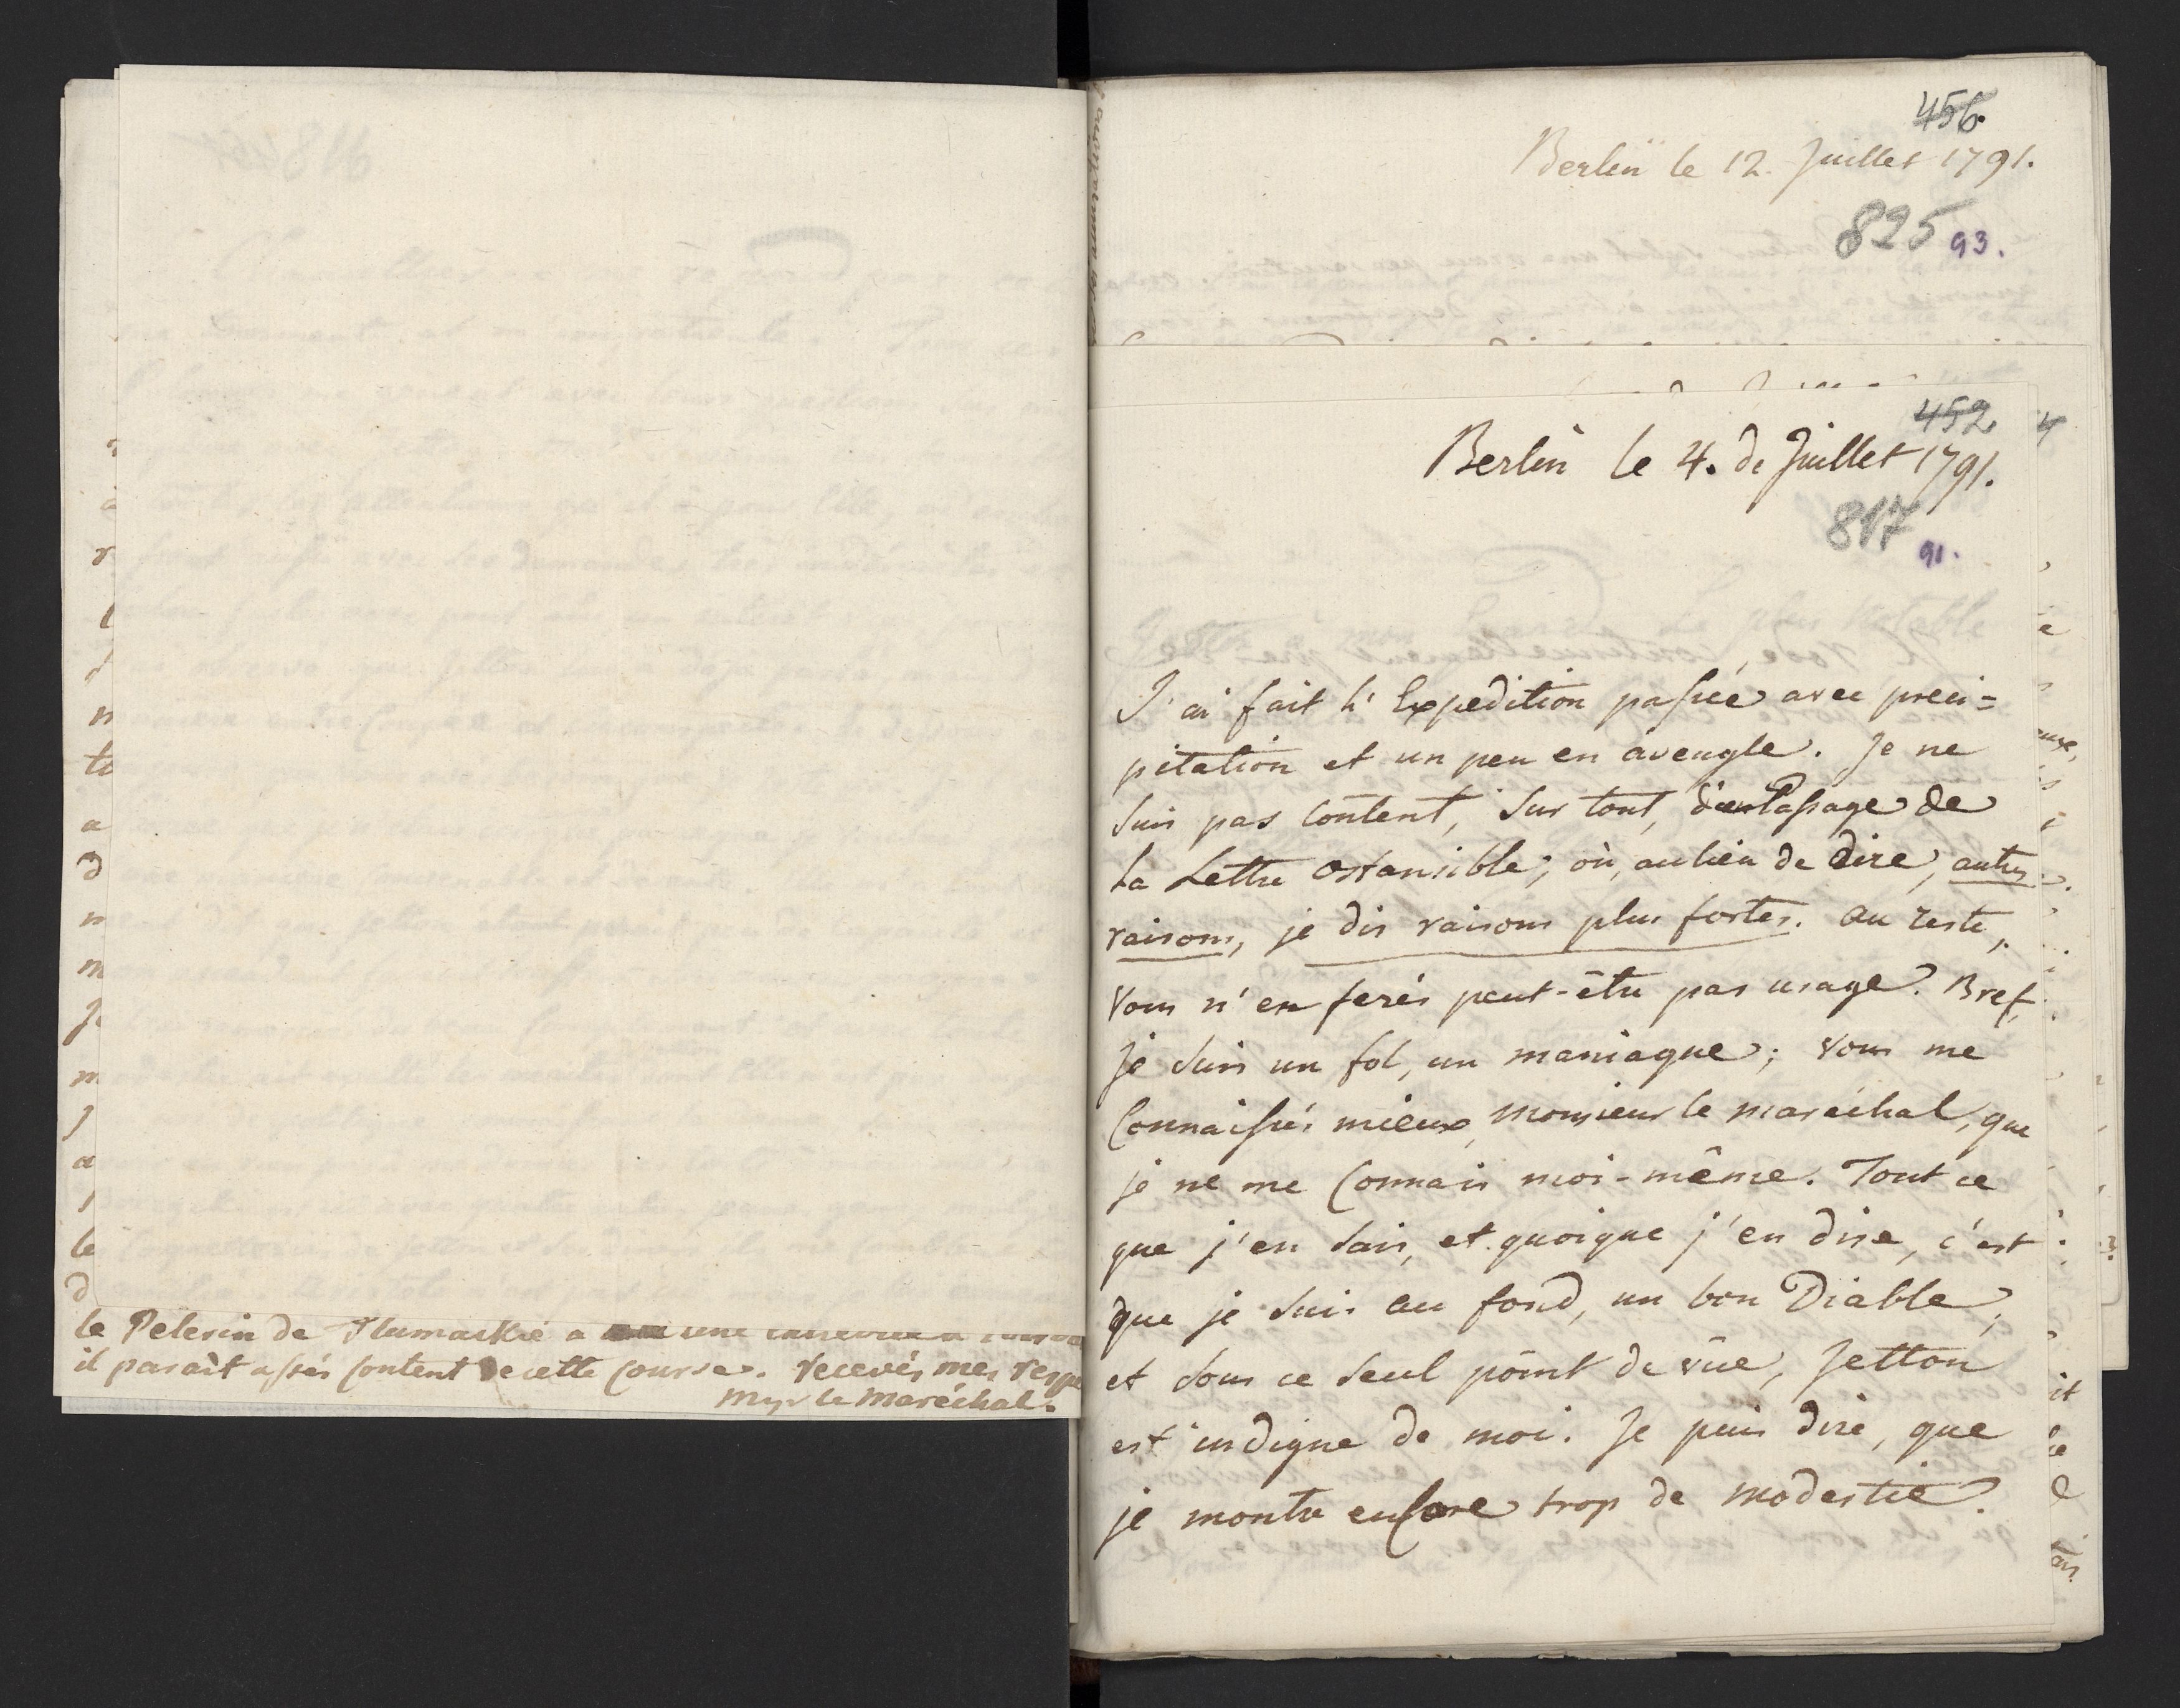 le Pelerin de
il paraît assés content de cette Course. recevés mes
Mgr le Maréchal.
456.
Berlin le 12. Juillet 1791.
825 93.
452.
Berlin le 4. de Juillet 1791.
817
91.
J'ai fait l'Expedition passée avec preci=
pitation et un peu en aveugle. Je ne
suis pas content, sur tout, d'un Passage de
la Lettre ostansible; où, au lieu de dire, autres
raisons, je dis raisons plus fortes. au reste,
vous n'en ferés peut-être pas usage. Bref,
je suis un fol, un maniaque; vous me
Connaissés mieux, Monsieur le maréchal, que
je ne me Connais moi-même. Tout ce
que j'en sais, et quoique j'en dise, c'est
que je suis au fond, un bon Diable,
et sous ce seul point de vüe, Jetton
est indigne de moi. Je puis dire, que
je montre enCore trop de modestie.